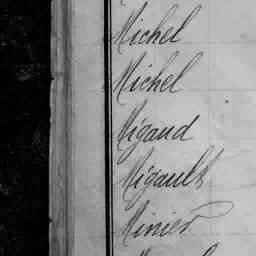 Michel
Michel
Migaud
Migault
Minier